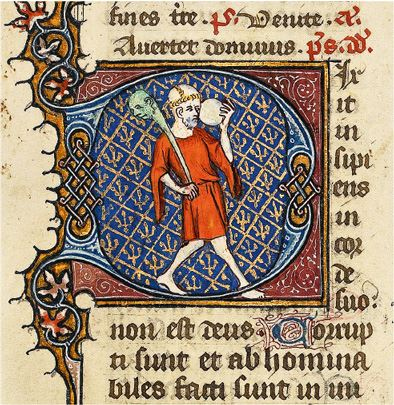 fines tre. ps. Venite. a.
Avertet dominus. ps. D.
Dix
it
in
sipi
ens
in
cor
de
suo:
non est deus Corrup
ti sunt et abhomina
biles facti sunt in